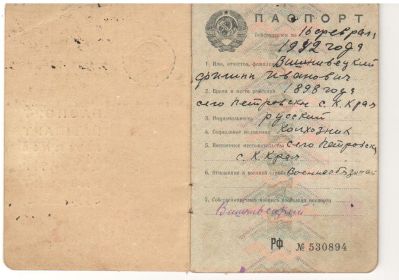 ПАСПОРТ
Действителен по 16 феврал
1942 года
1. Имя, отчество, фамилия Вишнивецкий
Филипп Иванович
2. Время и место рождения 1898 года
село Петровское с. К. Края
3. Национальность русский
4. Социальное положение колхозник
5. Постоянное местожительство село Петровск
с. К. Края
6. Отношение к военной службе Военнообязанный
7. Собственноручная подпись владельца паспорта
Вишнивецкий
РФ № 530894